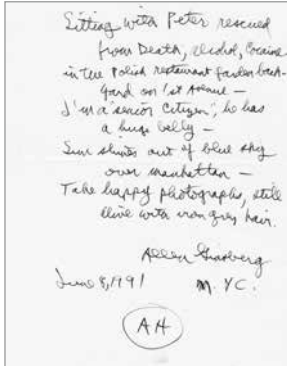 Sitting with Peter rescued
from Death, alcohol, Cocaine
in the Polish restaurant garden back-
yard on 1st Avenue —
I'm a 'senior citizen', he has
a huge belly —
Sun shines out of blue sky
over manhattan —
Take happy photographs, still
alive with iron grey hair.
Allen Ginsberg
June 8, 1991 N.Y.C.
AH